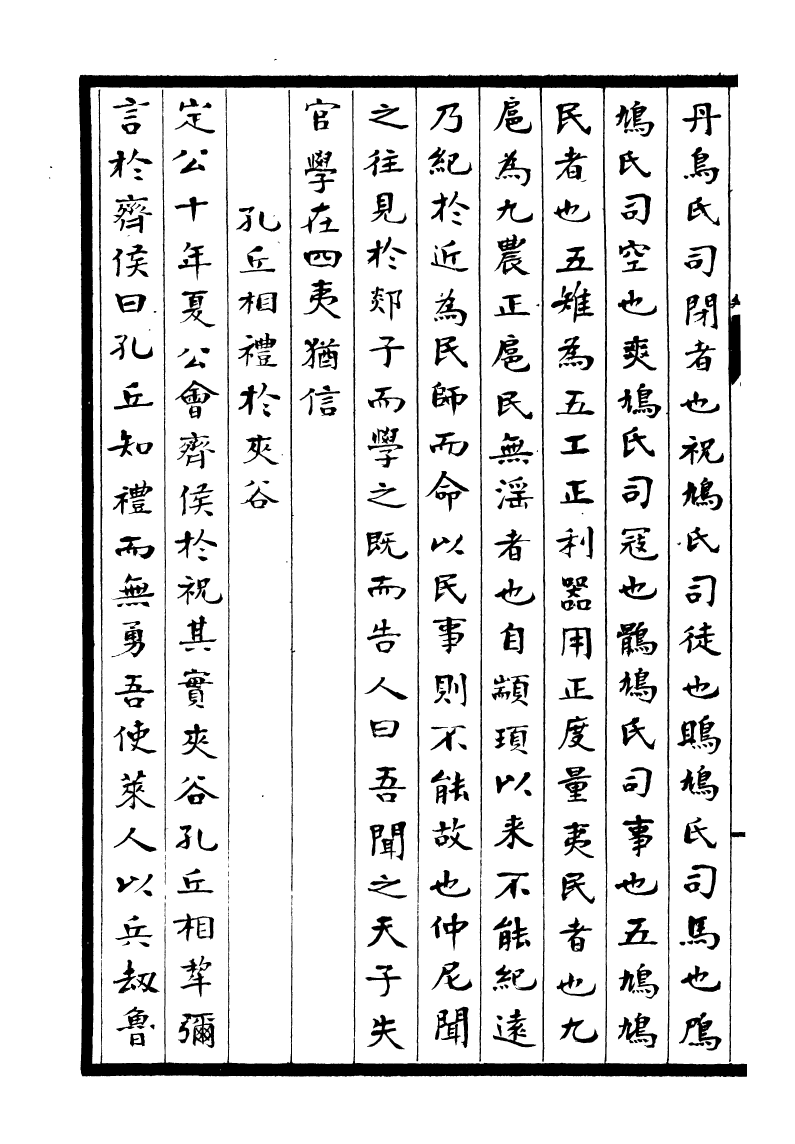 丹鳥氏司閉者也祝鳩氏司徒也鴡鳩氏司馬也鳲
鳩氏司空也爽鳩氏司寇也鶻鳩氏司事也五鳩鳩
民者也五雉為五工正利器用正度量夷民者也九
扈為九農正扈民無淫者也自顓頊以来不能紀遠
乃紀於近為民師而命以民事則不能故也仲尼聞
之往見於郯子而學之既而告人曰吾聞之天子失
官學在四夷猶信
孔丘相禮於夾谷
定公十年夏公會齊侯於祝其實夾谷孔丘相犂彌
言於齊侯曰孔丘知禮而無勇吾使萊人以兵劫魯